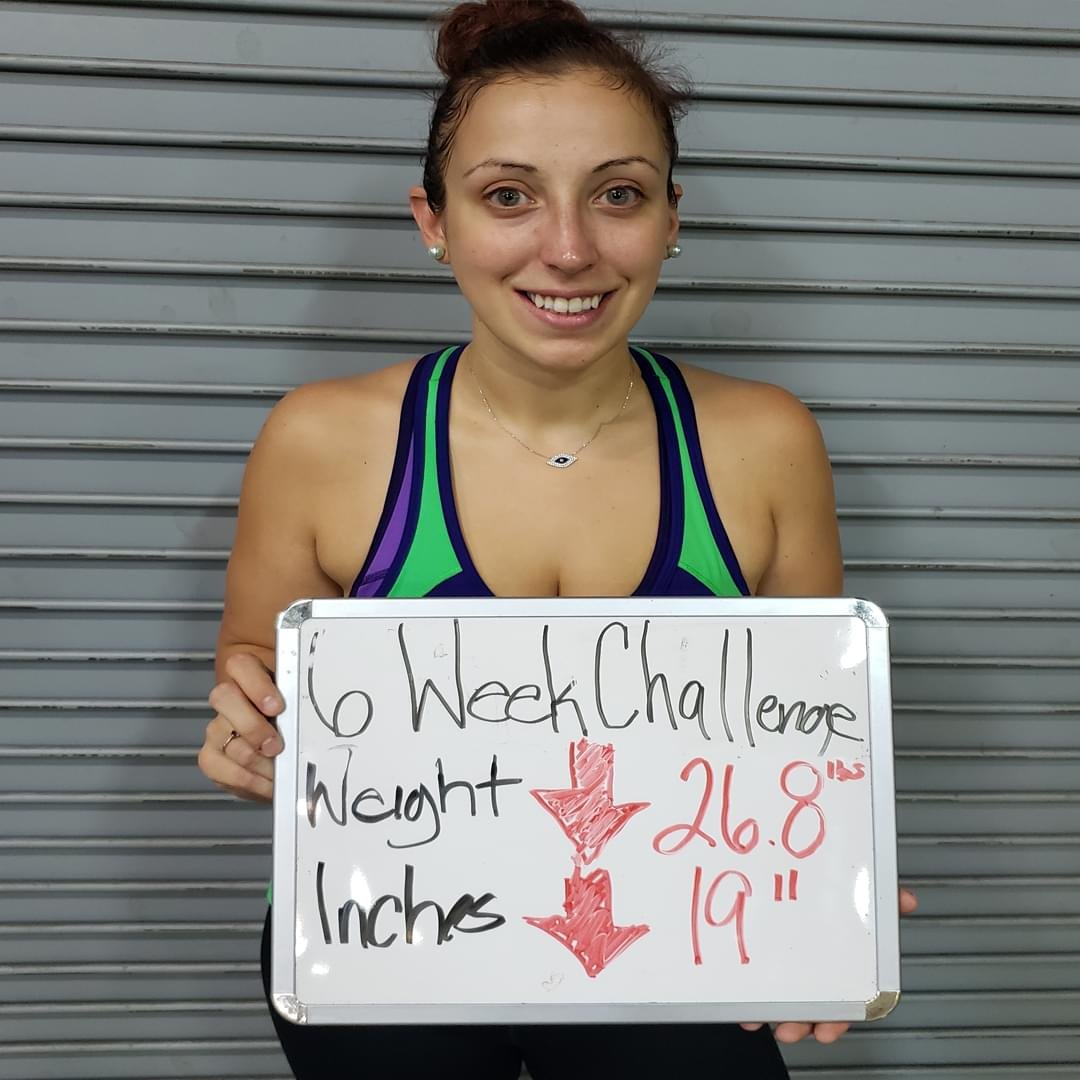 6 Week Challenge
Weight 26.8 lbs
Inches 19"